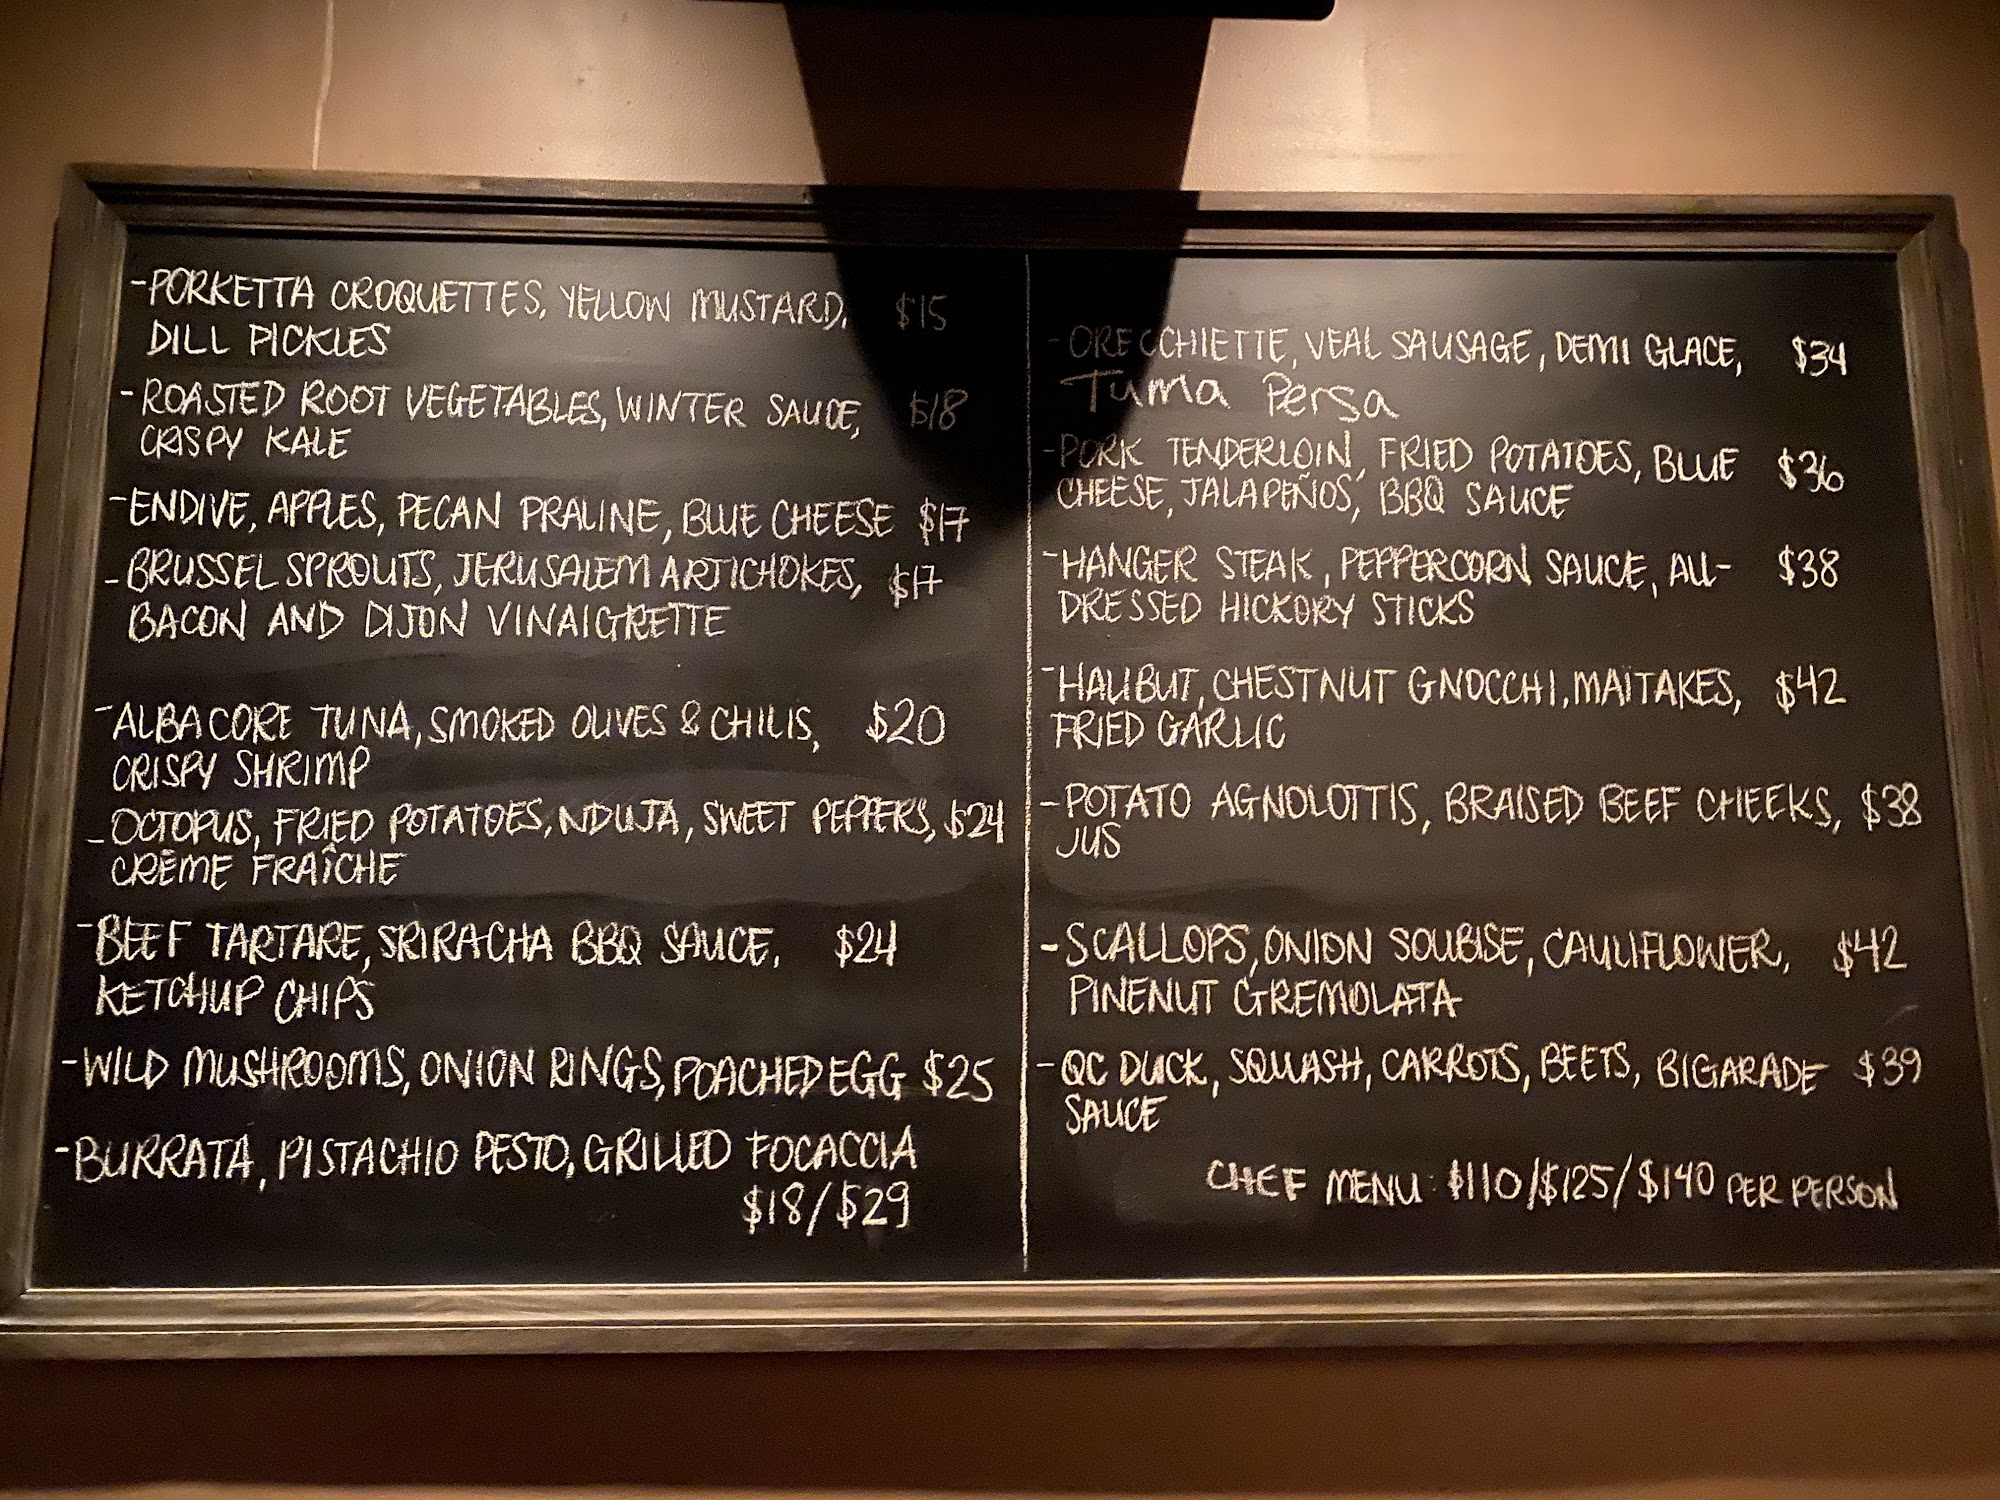 -PORKETTA CROQUETTES, YELLOW MUSTARD, $15
DILL PICKLES
-ROASTED ROOT VEGETABLES, WINTER SAUCE, $18
CRISPY KALE
-ENDIVE, APPLES, PECAN PRALINE, BLUE CHEESE $17
-BRUSSEL SPROUTS, JERUSALEM ARTICHOKES, $17
BACON AND DIJON VINAIGRETTE
-ALBACORE TUNA, SMOKED OLIVES & CHILIS, $20
CRISPY SHRIMP
-OCTOPUS, FRIED POTATOES, NDUJA, SWEET PEPPERS, $24
CRÈME FRAÎCHE
-BEEF TARTARE, SRIRACHA BBQ SAUCE, $24
KETCHUP CHIPS
-WILD MUSHROOMS, ONION RINGS, POACHED EGG $25
-BURRATA, PISTACHIO PESTO, GRILLED FOCACCIA
$18/$29
-ORECCHIETTE, VEAL SAUSAGE, DEMI GLACE, $34
Tuma Persa
-PORK TENDERLOIN, FRIED POTATOES, BLUE $36
CHEESE, JALAPEÑOS, BBQ SAUCE
-HANGER STEAK, PEPPERCORN SAUCE, ALL- $38
DRESSED HICKORY STICKS
-HALIBUT, CHESTNUT GNOCCHI, MAITAKES, $42
FRIED GARLIC
-POTATO AGNOLOTTIS, BRAISED BEEF CHEEKS, $38
JUS
-SCALLOPS, ONION SOUBISE, CAULIFLOWER, $42
PINENUT GREMOLATA
-QC DUCK, SQUASH, CARROTS, BEETS, BIGARADE $39
SAUCE
CHEF MENU: $110/$125/$140 PER PERSON